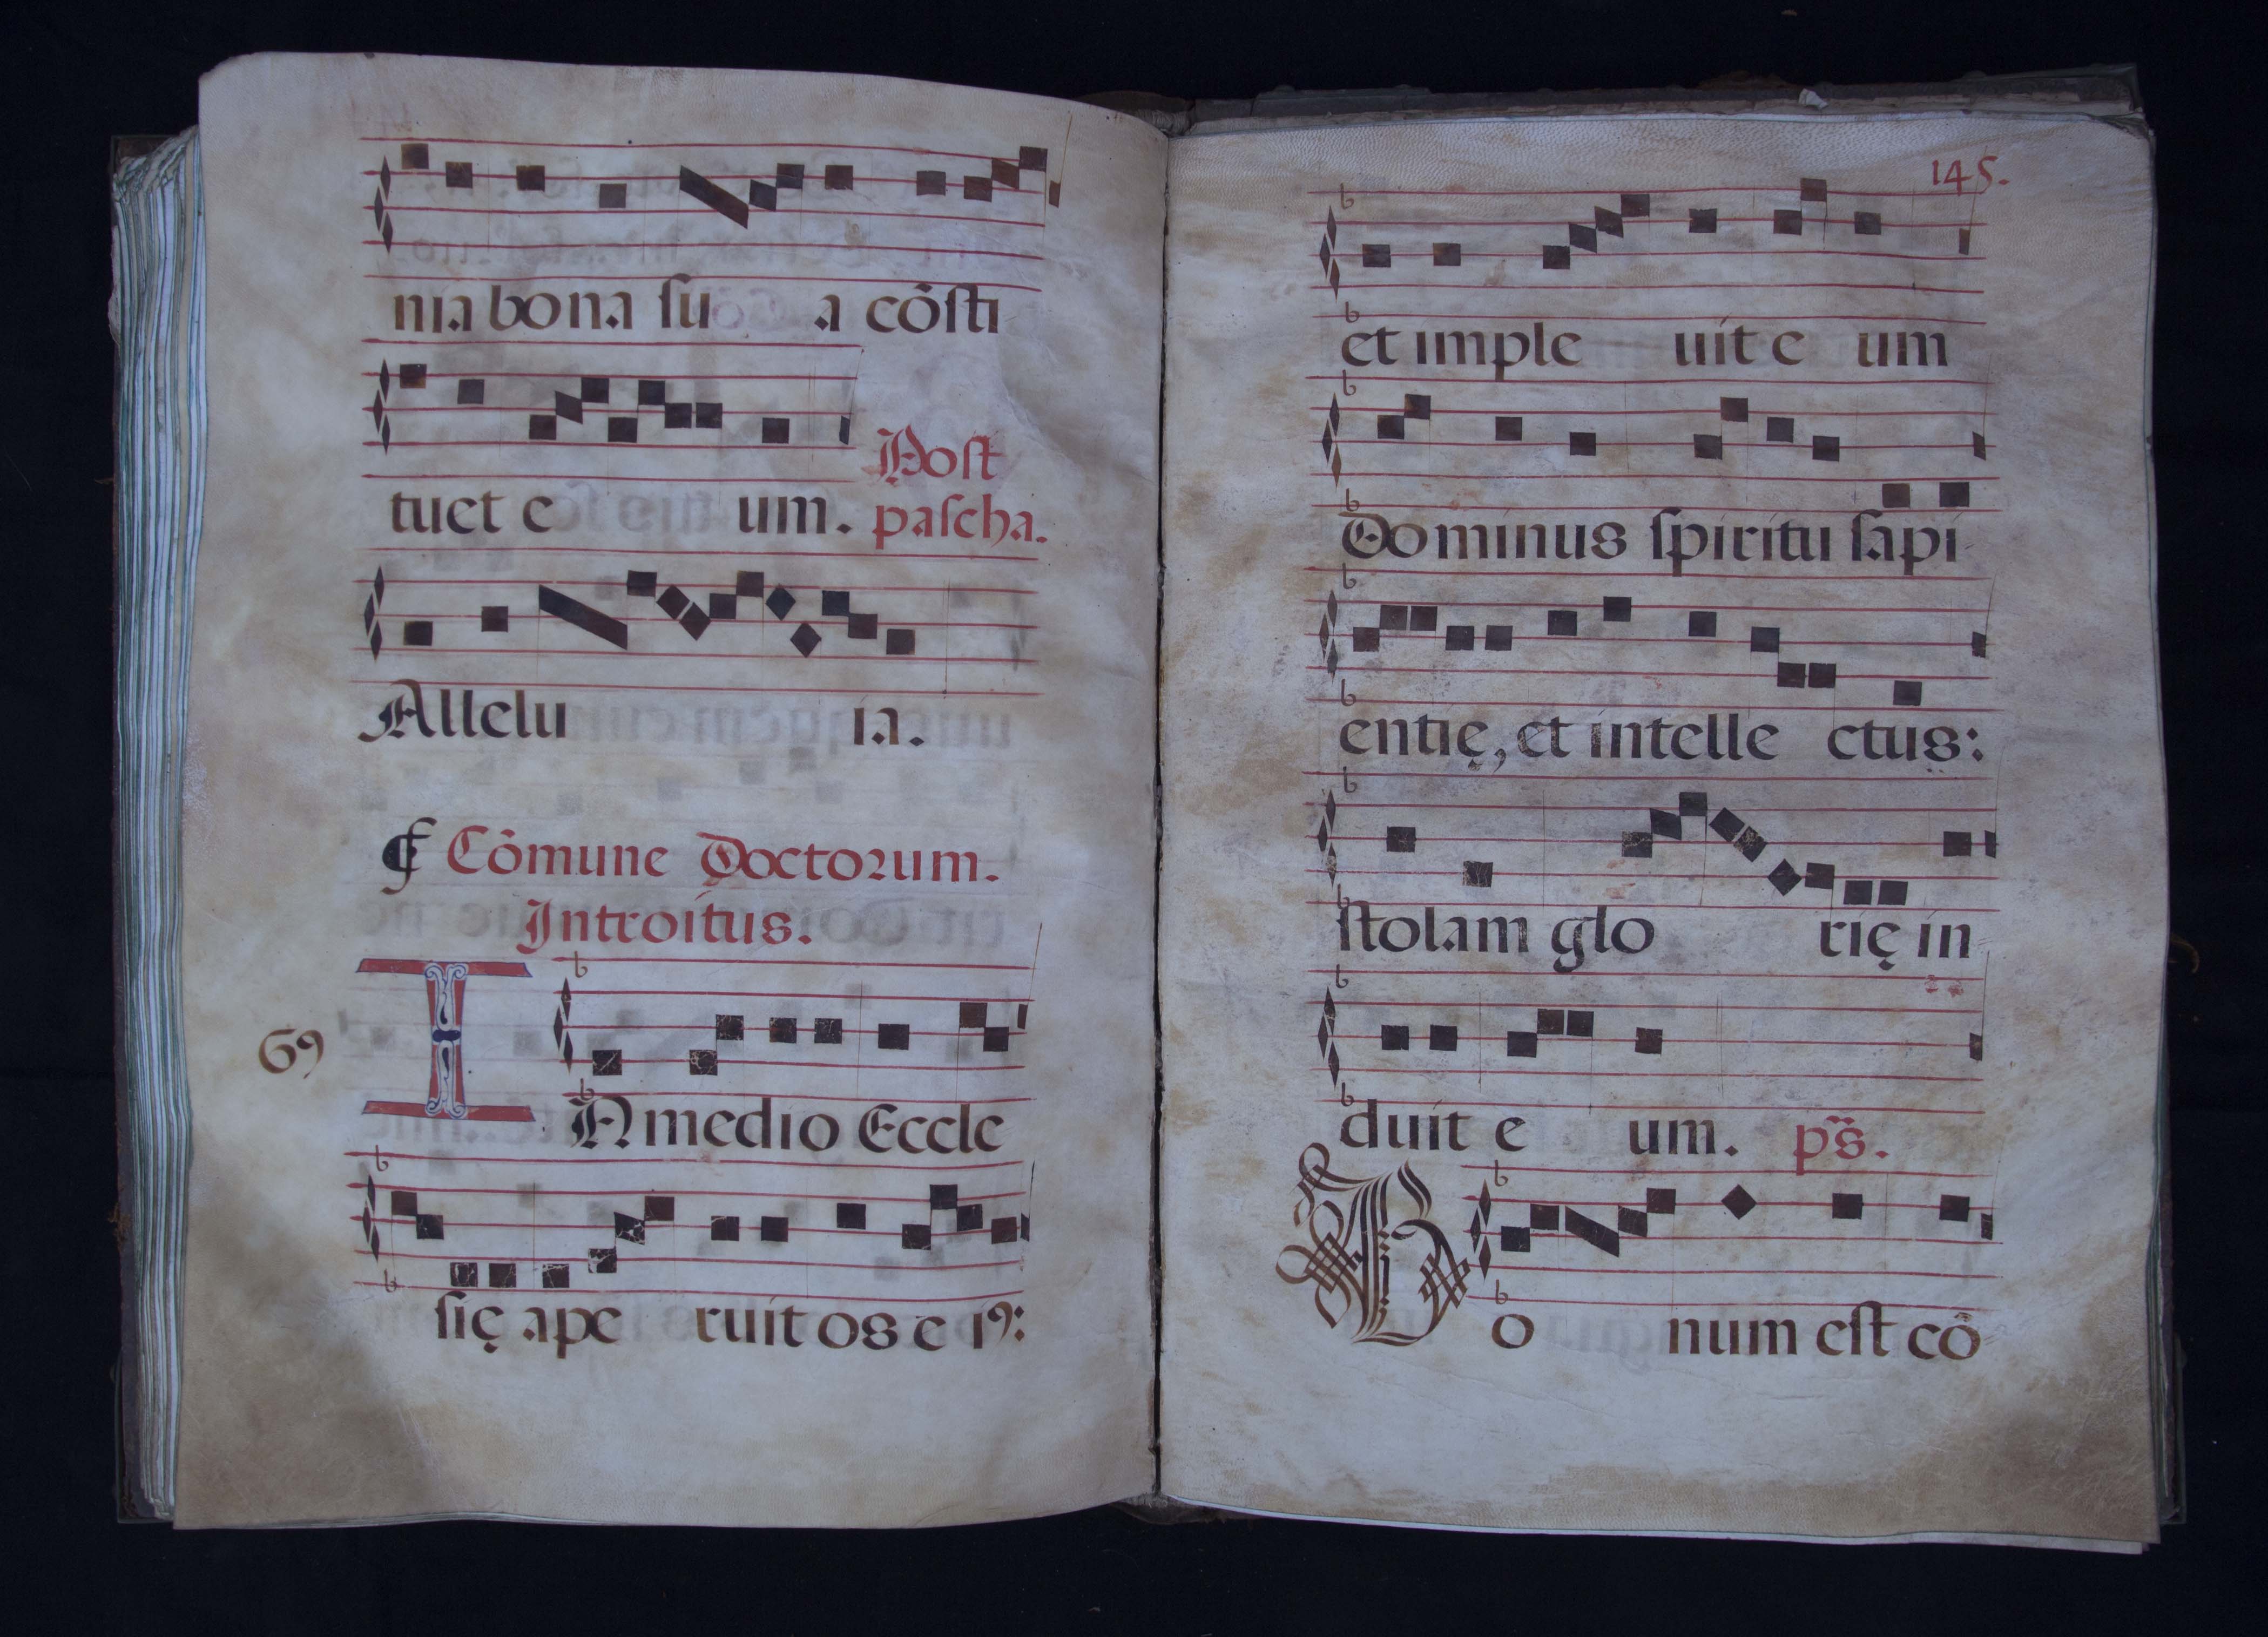 nia bona su a cõsti
tuet e um. Post
pascha.
Allelu ia.
¶ Cõmune Doctorum.
Introitus.
69
IN medio Eccle
się ape ruit os e i9:
145.
et imple uit e um
Dominus spiritu sapi
entię, et intelle ctus:
stolam glo rię in
duit e um. ps̃.
Bo num est cõ